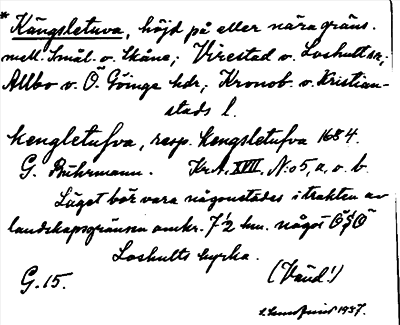 * Kängsletuva, höjd på eller nära gräns.
mell. Smål. o. Skåne; Virestad o. Loshult snr;
Allbo o. Ö. Göinge hdr; Kronob. o. Kristian-
stads l.
Kengletufva, resp. Kengsletufva 1684.
G. Buhrmann. Kr.A. XVII. N:o 5, a, o. b.
Läget bör vara någonstädes i trakten av
landskapsgränsen omkr. 7½ km. något ÖSÖ
Loshults kyrka.
G. 15. (Vänd!)
1937.